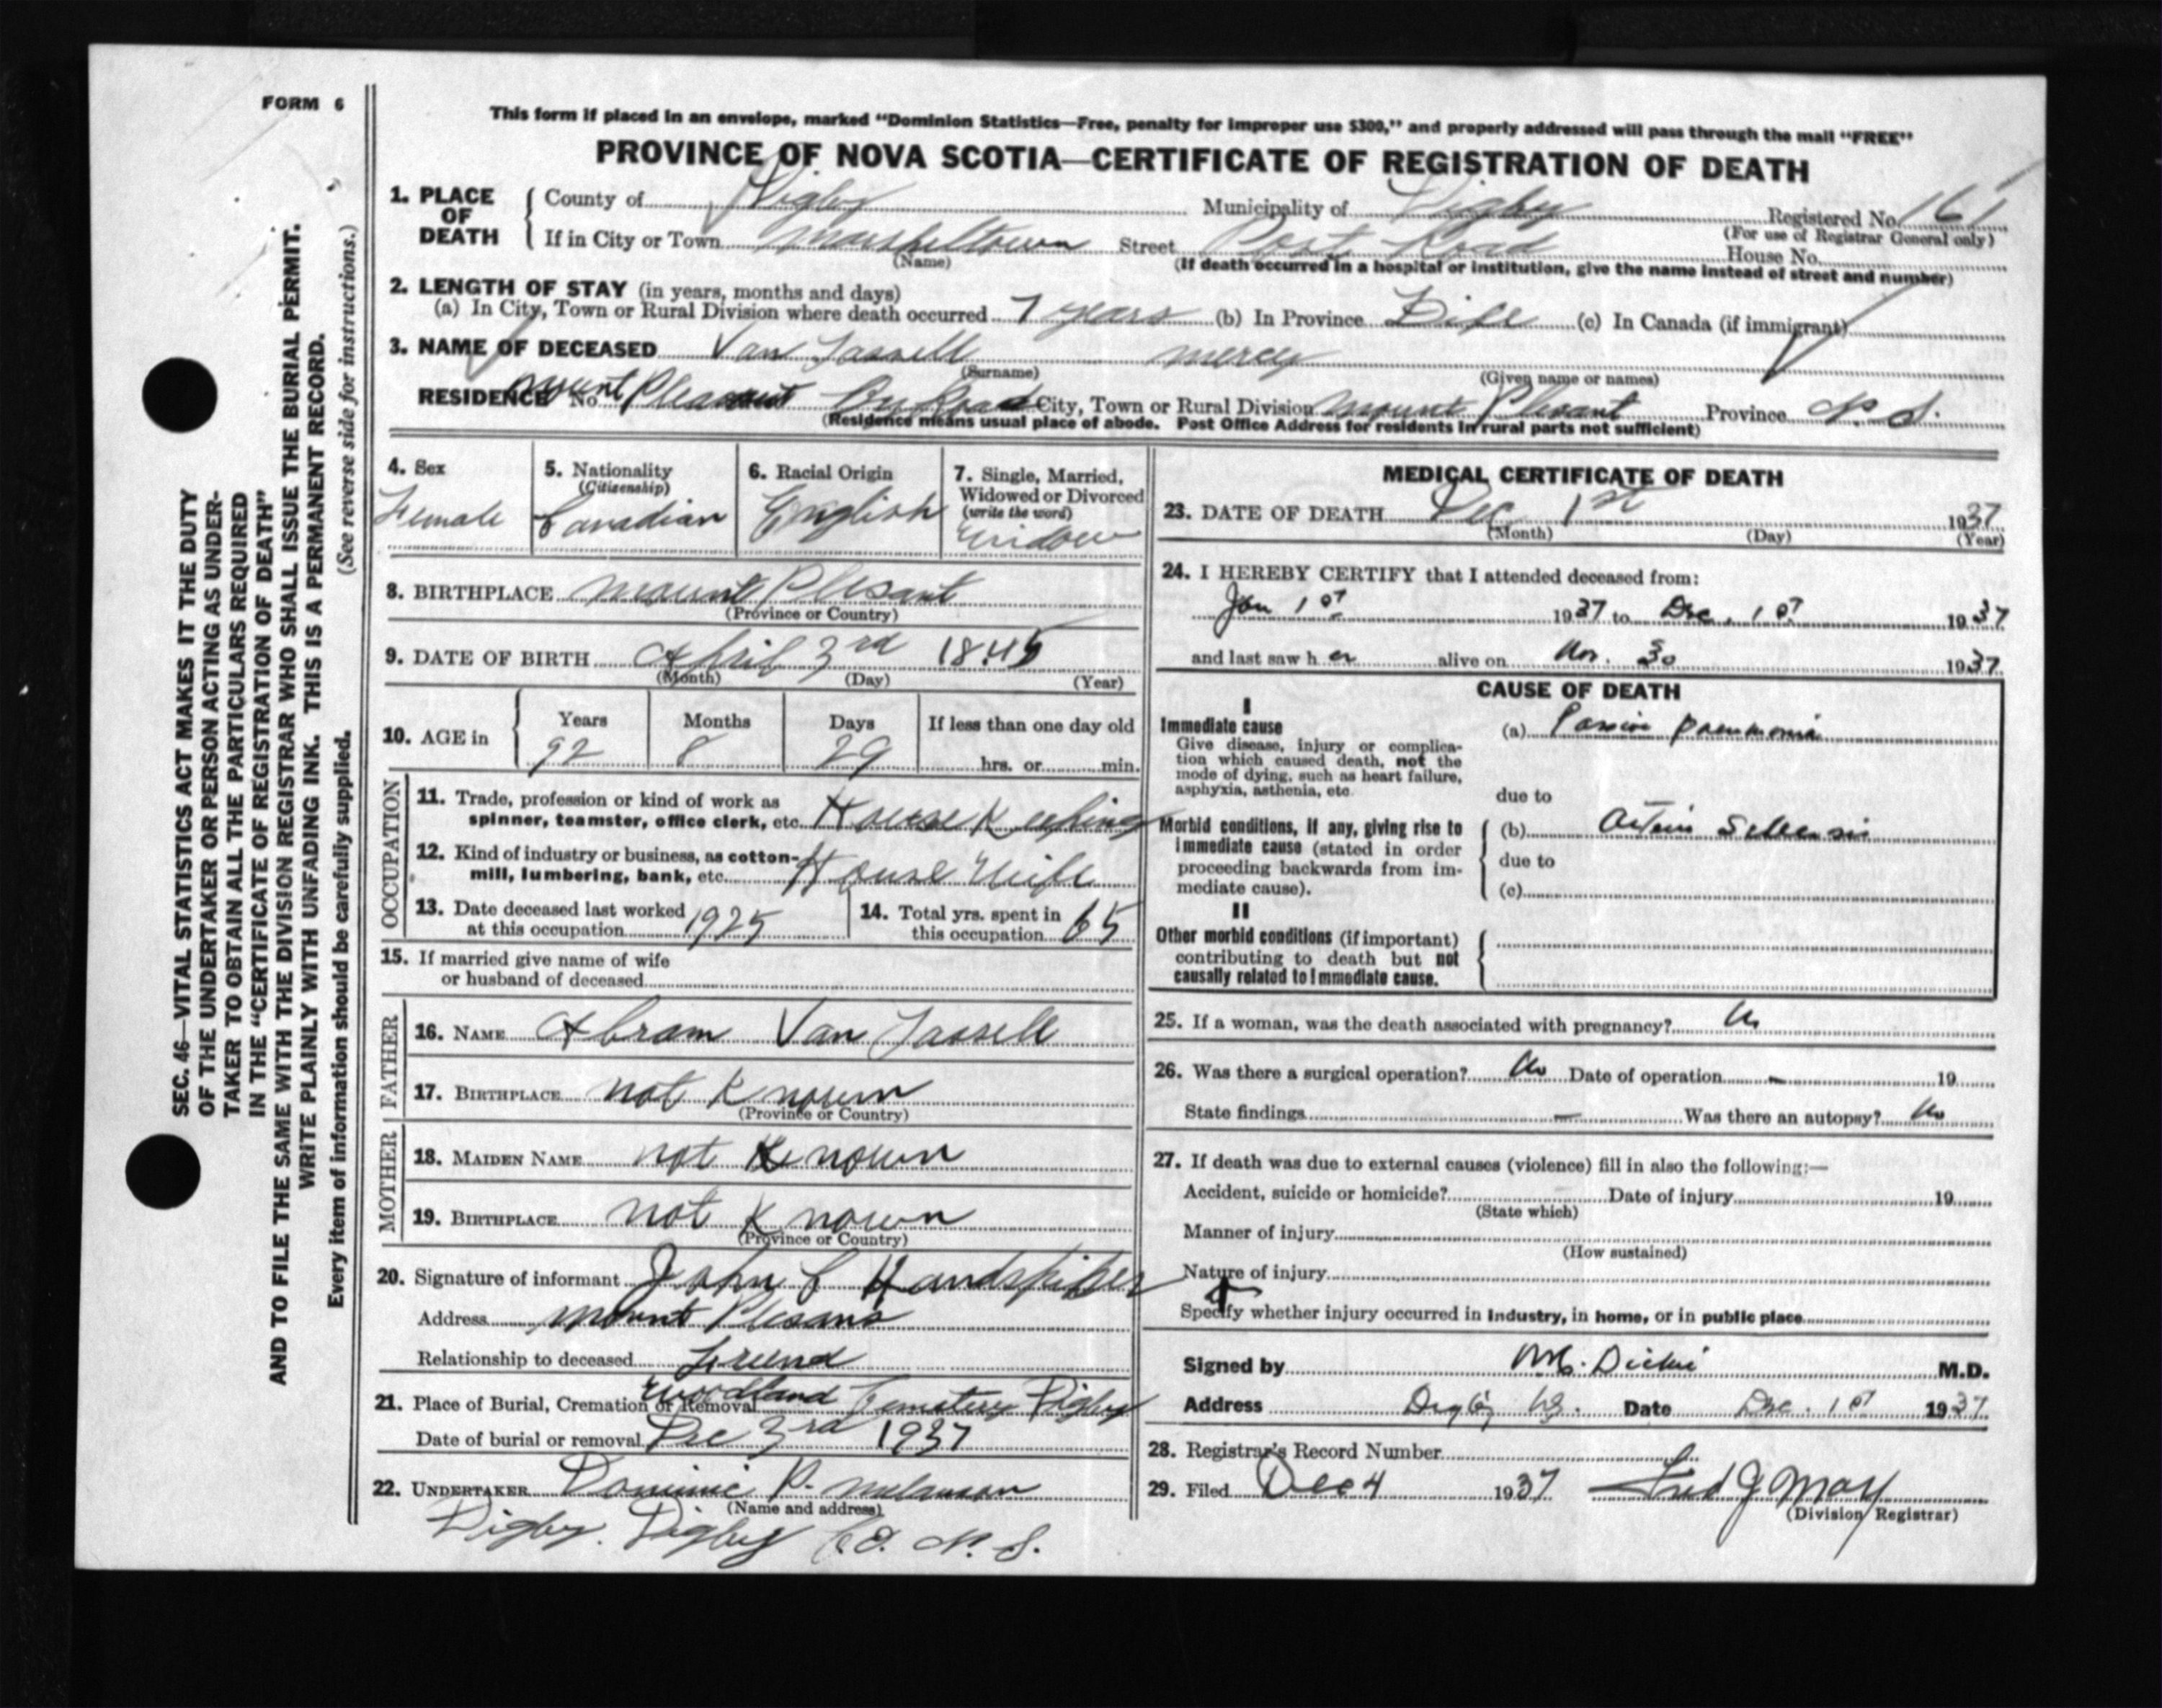 FORM 6
This form if placed in an envelope, marked "Dominion Statistics—Free, penalty for improper use $300," and properly addressed will pass through the mail "FREE"
PROVINCE OF NOVA SCOTIA—CERTIFICATE OF REGISTRATION OF DEATH
1. PLACE OF DEATH
County of Digby Municipality of Digby Registered No. 161
(For use of Registrar General only)
If in City or Town Marsheltown Street Post Road House No.
(Name)
(If death occurred in a hospital or institution, give the name instead of street and number)
2. LENGTH OF STAY (in years, months and days)
(a) In City, Town or Rural Division where death occurred 7 years (b) In Province Life (c) In Canada (if immigrant)
3. NAME OF DECEASED Van Tassell Mercy
(Surname) (Given name or names)
RESIDENCE No. Mount Pleasant Road City, Town or Rural Division Mount Plesant Province N.S.
(Residence means usual place of abode. Post Office Address for residents in rural parts not sufficient)
4. Sex
Female
5. Nationality
(Citizenship)
Canadian
6. Racial Origin
English
7. Single, Married,
Widowed or Divorced
(write the word)
Widow
8. BIRTHPLACE Mount Plesant
(Province or Country)
9. DATE OF BIRTH April 3rd 1845
(Month) (Day) (Year)
10. AGE in
Years Months Days If less than one day old
92 8 29 hrs. or min.
OCCUPATION
11. Trade, profession or kind of work as
spinner, teamster, office clerk, etc. House Keeping
12. Kind of industry or business, as cotton-
mill, lumbering, bank, etc. House Wife
13. Date deceased last worked
at this occupation 1925
14. Total yrs. spent in
this occupation 65
15. If married give name of wife
or husband of deceased
FATHER
16. NAME Abram Van Tassell
17. BIRTHPLACE not Known
(Province or Country)
MOTHER
18. MAIDEN NAME not Known
19. BIRTHPLACE not Known
(Province or Country)
20. Signature of informant John C Handspiker
Address Mount Plesant
Relationship to deceased Friend
21. Place of Burial, Cremation or Removal Woodland Cemetery Digby
Date of burial or removal Dec 3rd 1937
22. UNDERTAKER Dominic P. Melanson
(Name and address)
Digby. Digby Co. N. S.
MEDICAL CERTIFICATE OF DEATH
23. DATE OF DEATH Dec 1st 1937
(Month) (Day) (Year)
24. I HEREBY CERTIFY that I attended deceased from:
Jan 1st 1937 to Dec. 1st 1937
and last saw her alive on Nov. 30 1937
CAUSE OF DEATH
I
Immediate cause
Give disease, injury or complica-
tion which caused death, not the
mode of dying, such as heart failure,
asphyxia, asthenia, etc.
(a) Passive Pneumonia
due to
Morbid conditions, if any, giving rise to
immediate cause (stated in order
proceeding backwards from im-
mediate cause).
(b)
due to
(c)
II
Other morbid conditions (if important)
contributing to death but not
causally related to immediate cause.
25. If a woman, was the death associated with pregnancy? No
26. Was there a surgical operation? No Date of operation - 19
State findings — Was there an autopsy? No
27. If death was due to external causes (violence) fill in also the following:—
Accident, suicide or homicide? Date of injury 19
(State which)
Manner of injury
(How sustained)
Nature of injury
Specify whether injury occurred in industry, in home, or in public place
Signed by Dickie M.D.
Address Digby NS. Date Dec. 1st 1937
28. Registrar's Record Number
29. Filed Dec 4 1937 Fred J May
(Division Registrar)
SEC. 46—VITAL STATISTICS ACT MAKES IT THE DUTY
OF THE UNDERTAKER OR PERSON ACTING AS UNDER-
TAKER TO OBTAIN ALL THE PARTICULARS REQUIRED
IN THE "CERTIFICATE OF REGISTRATION OF DEATH"
AND TO FILE THE SAME WITH THE DIVISION REGISTRAR WHO SHALL ISSUE THE BURIAL PERMIT.
WRITE PLAINLY WITH UNFADING INK. THIS IS A PERMANENT RECORD.
Every item of information should be carefully supplied. (See reverse side for instructions.)